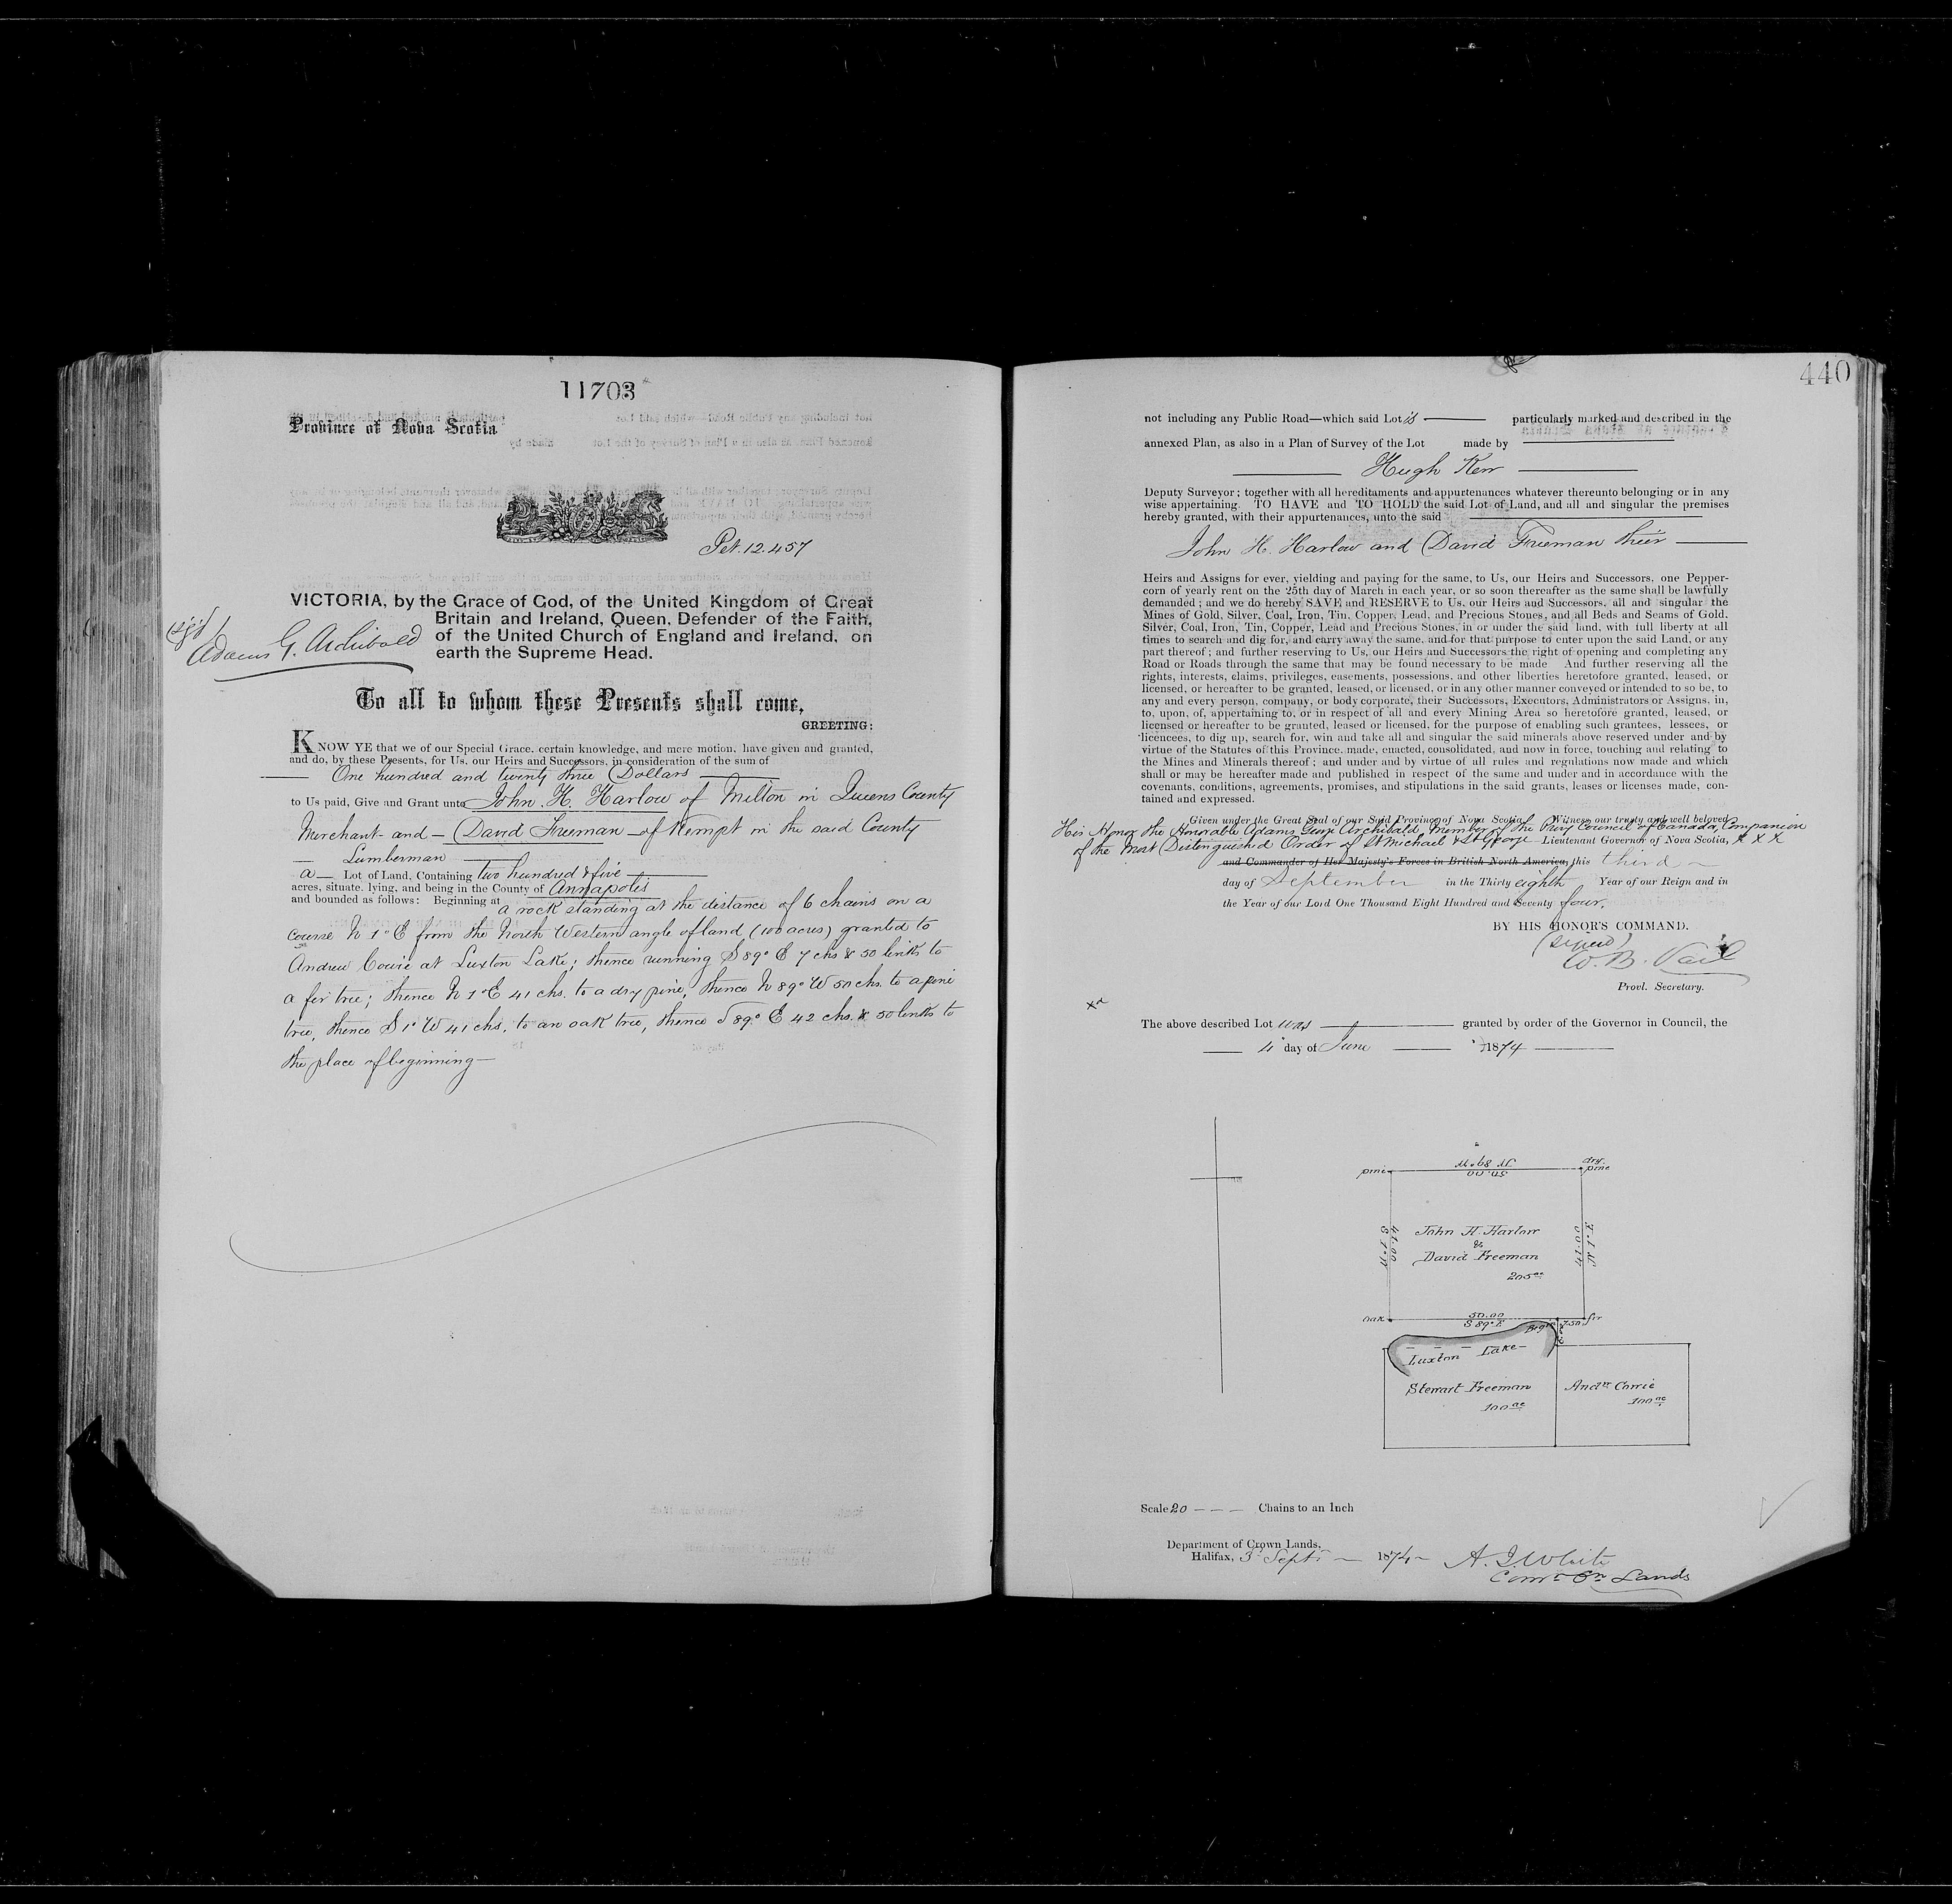 11703
Province of Nova Scotia
Pet. 12.457
VICTORIA, by the Grace of God, of the United Kingdom of Great
Britain and Ireland, Queen, Defender of the Faith,
of the United Church of England and Ireland, on
earth the Supreme Head.
(sgd)
Adams G. Archibald
To all to whom these Presents shall come,
GREETING:
KNOW YE that we of our Special Grace, certain knowledge, and mere motion, have given and granted,
and do, by these Presents, for Us, our Heirs and Successors, in consideration of the sum of
One hundred and twenty three Dollars
to Us paid, Give and Grant unto John. H. Harlow of Milton in Queens County
Merchant and David Freeman of Kempt in the said County
Lumberman
a Lot of Land, Containing two hundred & five
acres, situate, lying, and being in the County of Annapolis
and bounded as follows: Beginning at a rock standing at the distance of 6 chains on a
course N 1° E from the North Western angle of land (100 acres) granted to
Andrew Cowie at Luxton Lake; thence running S 89° E 7 chs & 50 links to
a fir tree; thence N 1° E 41 chs. to a dry pine, thence N 89° W 50 chs. to a pine
tree, thence S 1° W 41 chs, to an oak tree, thence S 89° E 42 chs. & 50 links to
the place of beginning—
440
not including any Public Road—which said Lot is particularly marked and described in the
annexed Plan, as also in a Plan of Survey of the Lot made by
Hugh Kerr
Deputy Surveyor; together with all hereditaments and appurtenances whatever thereunto belonging or in any
wise appertaining. TO HAVE and TO HOLD the said Lot of Land, and all and singular the premises
hereby granted, with their appurtenances, unto the said
John H. Harlow and David Freeman their
Heirs and Assigns for ever, yielding and paying for the same, to Us, our Heirs and Successors, one Pepper-
corn of yearly rent on the 25th day of March in each year, or so soon thereafter as the same shall be lawfully
demanded; and we do hereby SAVE and RESERVE to Us, our Heirs and Successors, all and singular the
Mines of Gold, Silver, Coal, Iron, Tin, Copper, Lead, and Precious Stones, and all Beds and Seams of Gold,
Silver, Coal, Iron, Tin, Copper, Lead and Precious Stones, in or under the said land, with full liberty at all
times to search and dig for, and carry away the same, and for that purpose to enter upon the said Land, or any
part thereof; and further reserving to Us, our Heirs and Successors the right of opening and completing any
Road or Roads through the same that may be found necessary to be made And further reserving all the
rights, interests, claims, privileges, easements, possessions, and other liberties heretofore granted, leased, or
licensed, or hereafter to be granted, leased, or licensed, or in any other manner conveyed or intended to so be, to
any and every person, company, or body corporate, their Successors, Executors, Administrators or Assigns, in,
to, upon, of, appertaining to, or in respect of all and every Mining Area so heretofore granted, leased, or
licensed or hereafter to be granted, leased or licensed, for the purpose of enabling such grantees, lessees, or
licencees, to dig up, search for, win and take all and singular the said minerals above reserved under and by
virtue of the Statutes of this Province, made, enacted, consolidated, and now in force, touching and relating to
the Mines and Minerals thereof; and under and by virtue of all rules and regulations now made and which
shall or may be hereafter made and published in respect of the same and under and in accordance with the
covenants, conditions, agreements, promises, and stipulations in the said grants, leases or licenses made, con-
tained and expressed.
Given under the Great Seal of our Said Province of Nova Scotia. Witness our trusty and well beloved
His Honor the Honorable Adams George Archibald, Member of the Privy Council of Canada, Companion
of the Most Distinguished Order of St Michael & St George Lieutenant Governor of Nova Scotia, x x x
and Commander of Her Majesty's Forces in British North America, this third
day of September in the Thirty eighth Year of our Reign and in
the Year of our Lord One Thousand Eight Hundred and Seventy four.
BY HIS HONOR'S COMMAND.
(signed)
W. B. Vail
Provl. Secretary.
The above described Lot was granted by order of the Governor in Council, the
4 day of June 1874
pine
N 89° W
50.00
dry
pine
S 1° W
41.00
John H. Harlow
&
David Freeman
205 ac
N 1° E
41.00
oak
50.00
S 89° E
Beg
7.50
fir
Luxton Lake
Stewart Freeman
100 ac
Andw Cowie
100 ac
Scale 20 Chains to an Inch
Department of Crown Lands,
Halifax, 3 Sept 1874
A. J. White
Comr Cn Lands